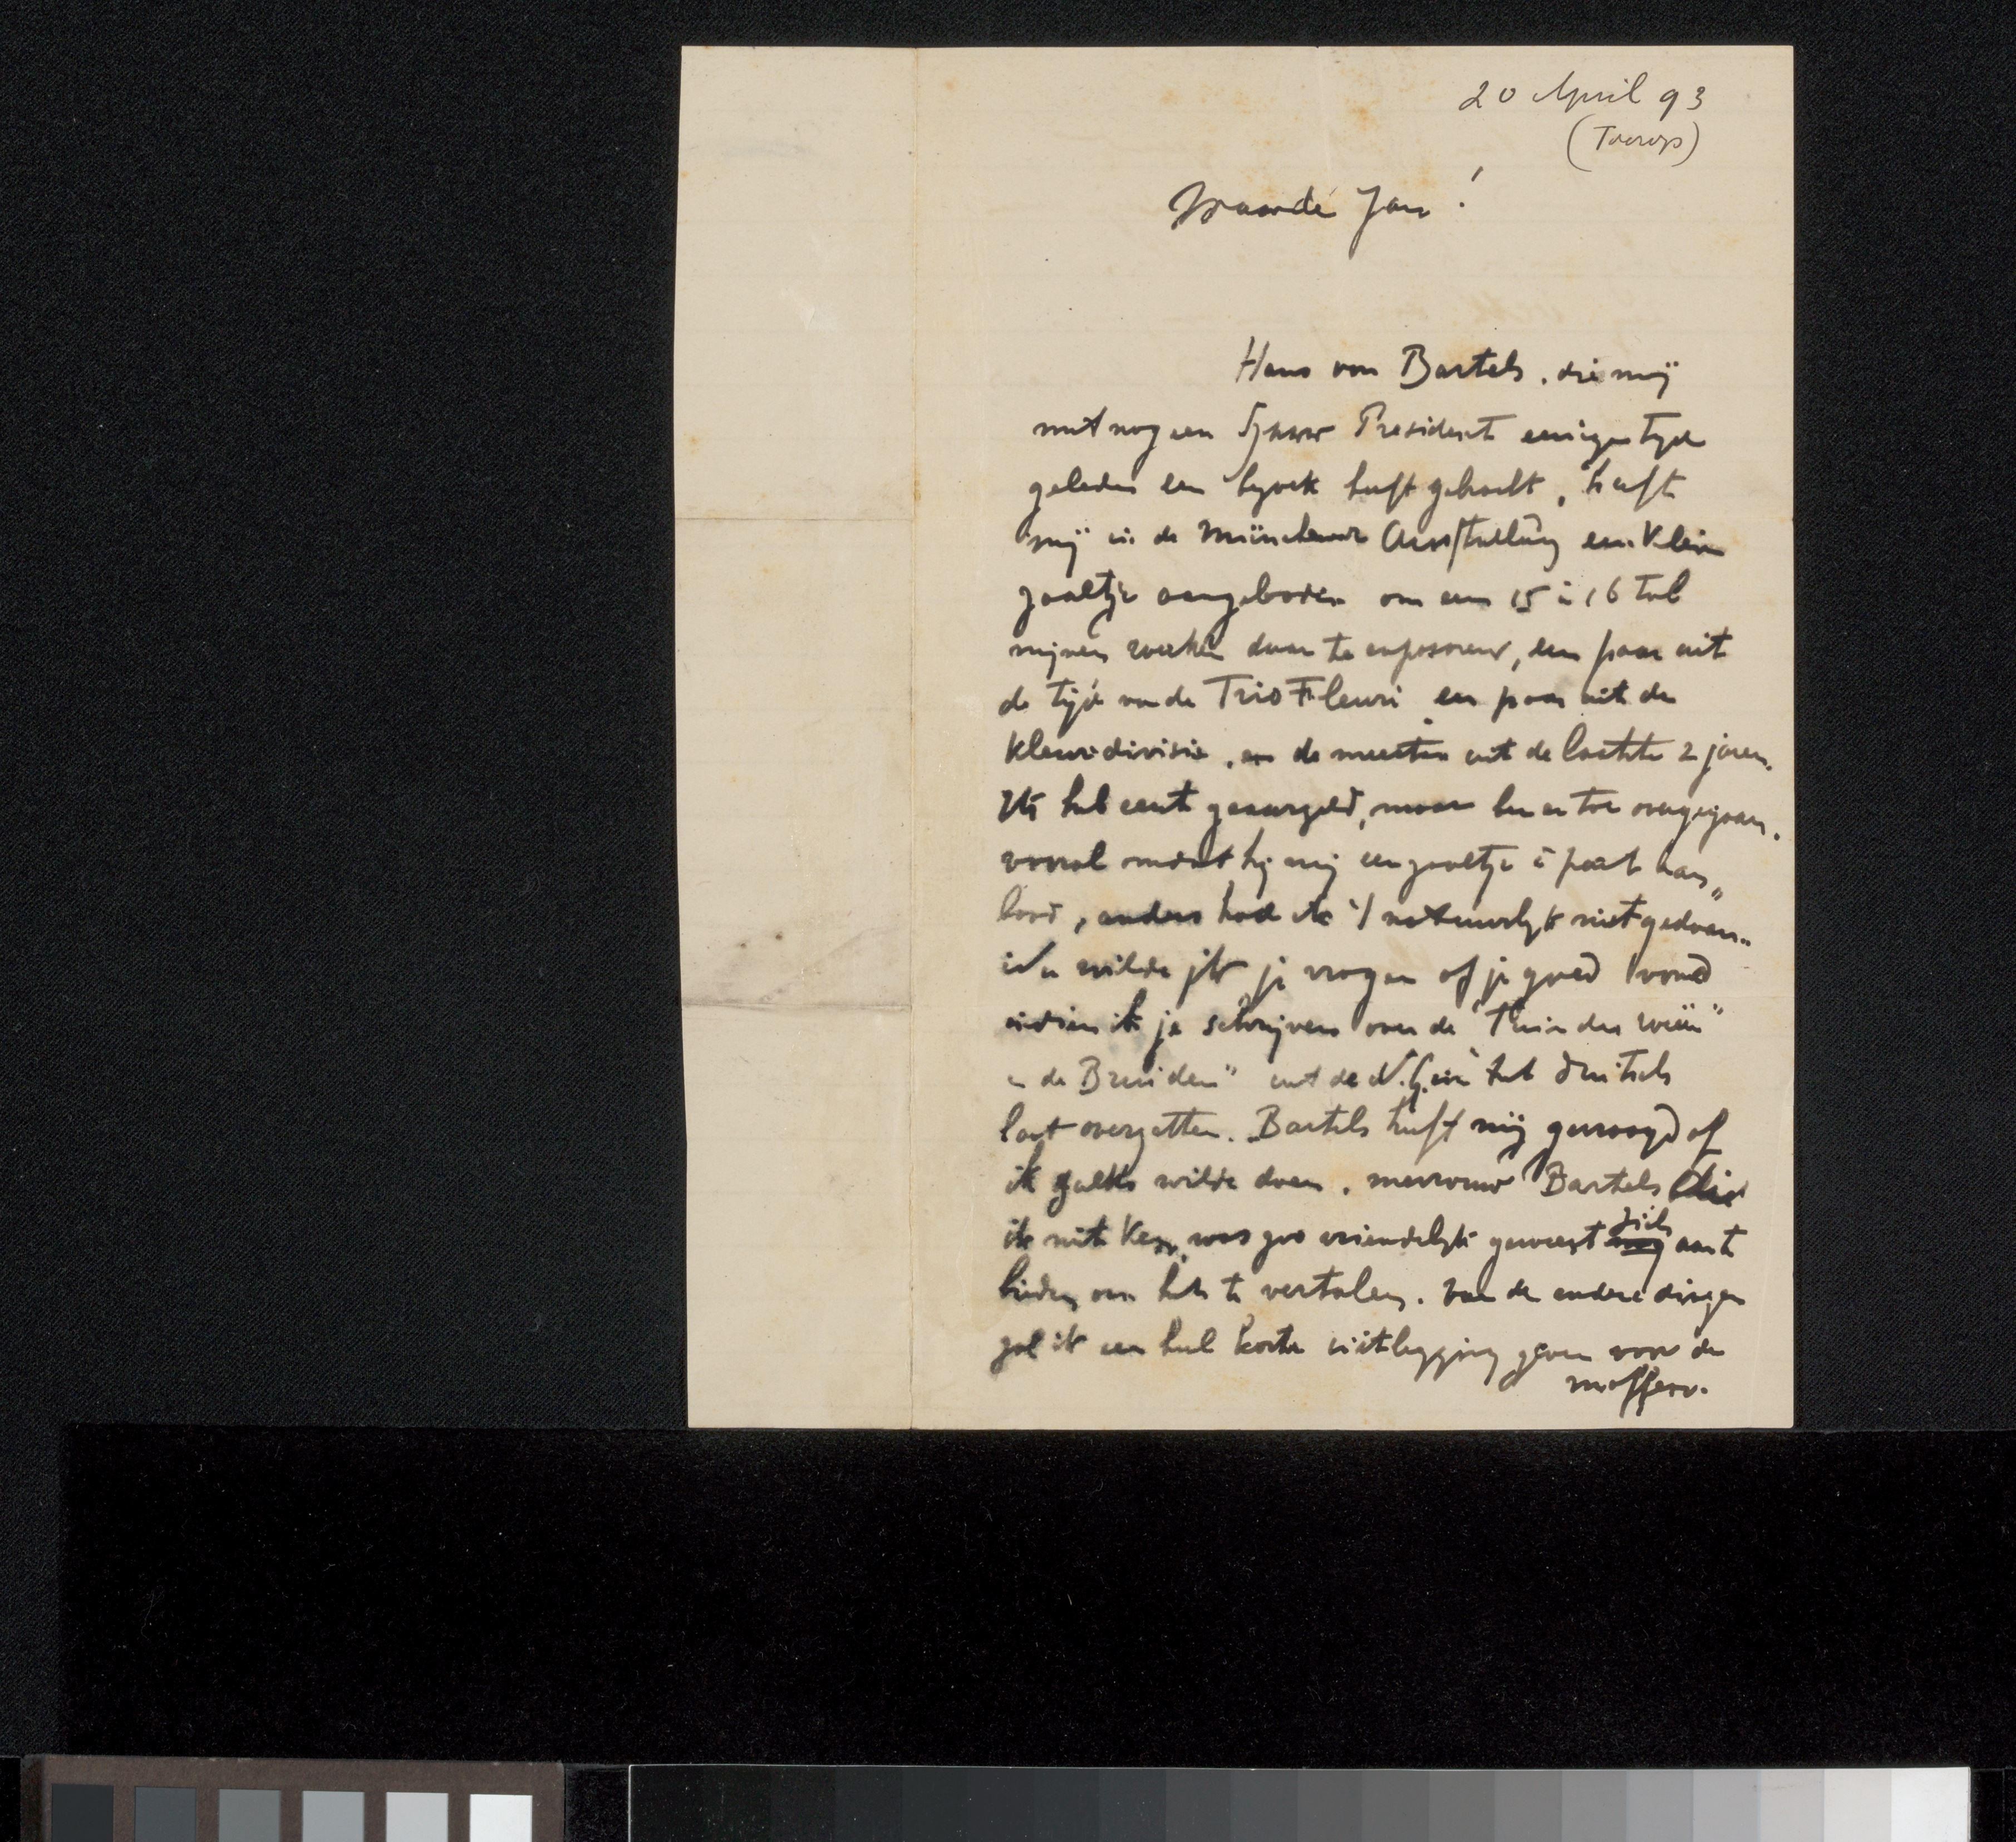 20 April 93
(Toorop)
Waarde Jan!
Hans von Bartels, die mij
met nog een President eenigen tijd
geleden een bezoek heeft gebracht, heeft
mij in de Münchener Ausstellung een klein
zaaltje aangeboden om een 15 à 16 tal
mijner werken daar te exposeeren, een paar uit
de tijd van de Trio Fleuri een paar uit de
kleurdivisie, en de meesten uit de laatste 2 jaren.
Ik heb eerst geaarzeld, maar ben er toe overgegaan,
vooral omdat hij mij een zaaltje à part aan„
bood, anders had ik 't natuurlijk niet gedaan.
Nu wilde ik je vragen of je goed vond
indien ik je schrijven over de "Tuin der weeën"
en de Bruiden" uit de N.G. in het duitsch
laat overzetten. Bartels heeft mij gevraagd of
ik zulks wilde doen. mevrouw Bartels die
ik niet ken, was zoo vriendelijk geweest zich aan te
bieden om het te vertalen. Van de andere dingen
zal ik een heel korte uitlegging geven voor de
moffen.